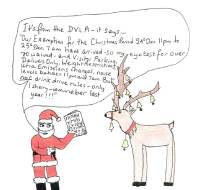 It's from the DVLA - it says...
Our Exemption for the Christmas Period 24th Dec 11pm to
25th Dec 7am have arrived - so my eyetest for over
70 waived - and Visitor Parking,
Delivery Only, Weight Restrictions,
Ultra Emissions Charges, noise
levels between 11pm and 7am. But
drink drive rules - only
1 sherry - remember last
year!!!